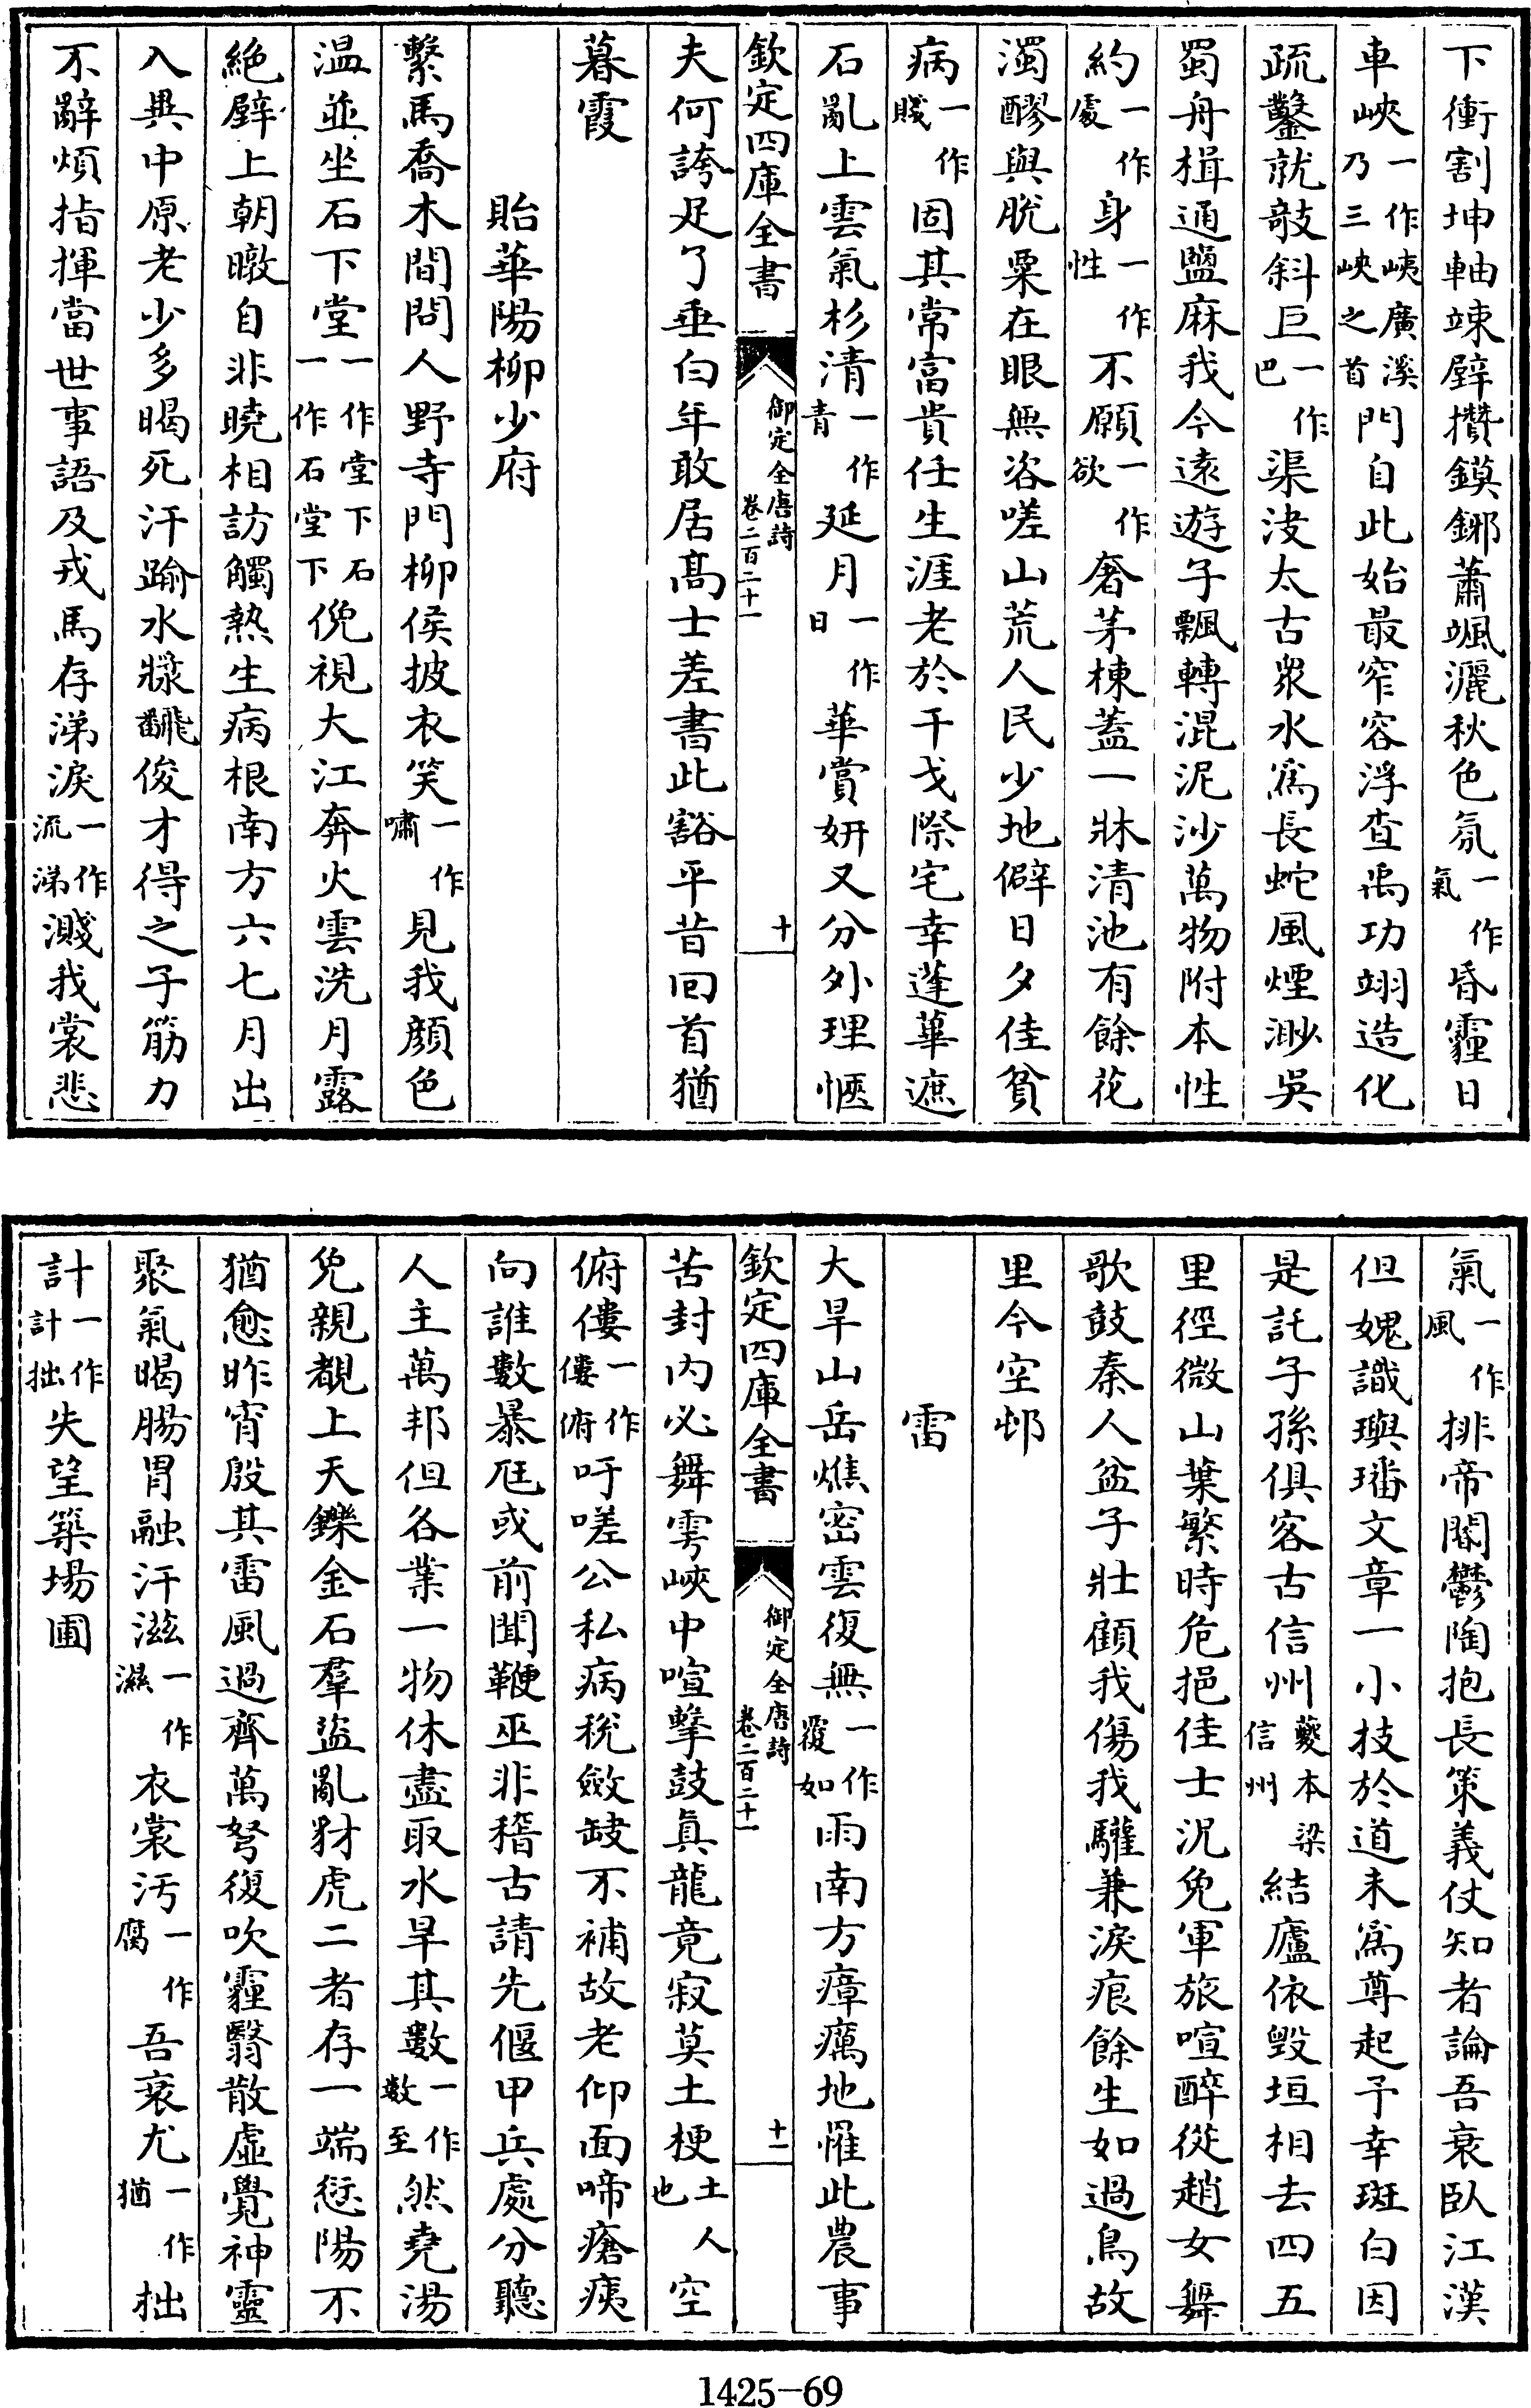 下衝割坤軸竦壁攢鏌鋣蕭颯灑秋色氛一作氣昏霾日
車峽一作峽廣溪乃三峽之首門自此始最窄容浮查禹功翊造化
疏鑿就敧斜巨一作巴渠決太古衆水爲長蛇風煙渺吳
蜀舟楫通鹽麻我今遠遊子飄轉混泥沙萬物附本性
約一作處身一作性不願一作欲奢茅棟蓋一牀清池有餘花
濁醪與脫粟在眼無咨嗟山荒人民少地僻日夕佳貧
病一作賤固其常富貴任生涯老於干戈際宅幸蓬蓽遮
石亂上雲氣杉清一作青延月一作日華賞妍又分外理愜
欽定四庫全書
御定全唐詩
卷二百二十一
十
夫何誇足了垂白年敢居髙士差書此豁平昔回首猶
暮霞
貽華陽柳少府
繫馬喬木間問人野寺門柳侯披衣笑一作嘯見我顔色
温並坐石下堂一作堂下石一作石堂下俛視大江奔火雲洗月露
絶壁上朝暾自非曉相訪觸熱生病根南方六七月出
入異中原老少多暍死汗踰水漿飜俊才得之子筋力
不辭煩指揮當世事語及戎馬存涕淚一作流涕濺我裳悲
氣一作風排帝閽鬱陶抱長策義仗知者論吾衰臥江漢
但媿識璵璠文章一小技於道未爲尊起予幸斑白因
是託子孫俱客古信州夔本梁信州結廬依毀垣相去四五
里徑微山葉繁時危挹佳士況免軍旅喧醉從趙女舞
歌鼓秦人盆子壯顧我傷我驩兼淚痕餘生如過鳥故
里今空邨
雷
大旱山岳燋密雲復無一作覆如雨南方瘴癘地罹此農事
欽定四庫全書
御定全唐詩
卷二百二十一
十一
苦封内必舞雩峽中喧擊鼓真龍竟寂莫土梗土人也空
俯僂一作僂俯吁嗟公私病稅斂缺不補故老仰面啼瘡痍
向誰數暴尫或前聞鞭巫非稽古請先偃甲兵處分聽
人主萬邦但各業一物休盡取水旱其數一作數至然堯湯
免親覩上天鑠金石羣盜亂豺虎二者存一端愆陽不
猶愈昨宵殷其雷風過齊萬弩復吹霾翳散虛覺神靈
聚氣暍腸胃融汗滋一作濕衣裳汚一作腐吾衰尤一作猶拙
計一作計拙失望築場圃
1425—69